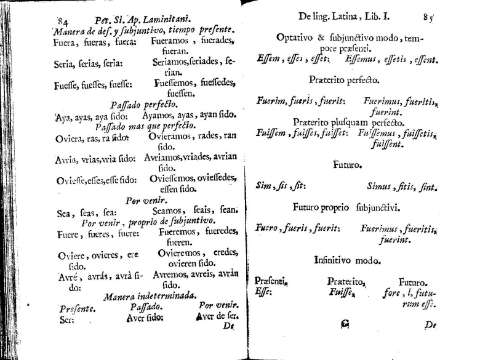 84 Per. Sl. Ap. Laminitani.
Manera de des. y subjuntivo, tiempo presente.
Fuera, fueras, fuera: Fueramos, fuerades,
fueran.
Seria, serias, seria: Seriamos, seriades, se-
rian.
Fuesse, fuesses, fuesse: Fuessemos, fuessedes,
fuessen.
Passado perfecto.
Aya, ayas, aya sido: Ayamos, ayas, ayan sido.
Passado mas que perfecto.
Oviera, ras, ra sido: Ovieramos, rades, ran
sido.
Avria, vrias, vria sido: Avriamos, vriades, avrian
sido.
Oviesse, esses, esse sido: Oviessemos, oviessedes,
essen sido.
Por venir.
Sea, seas, sea: Seamos, seais, sean.
Por venir, proprio de subjuntivo.
Fuere, fueres, fuere: Fueremos, fueredes,
fueren.
Oviere, ovieres, ere Ovieremos, eredes,
sido. ovieren sido.
Avré, avrás, avrá si- Avremos, avreis, avrán
do. sido.
Manera indeterminada.
Presente. Passado. Por venir.
Ser: Aver sido: Aver de ser.
De
De ling. Latina, Lib. I. 85
Optativo & subjunctivo modo, tem-
pore præsenti.
Essem, esses, esset: Essemus, essetis, essent.
Præterito perfecto.
Fuerim, fueris, fuerit: Fuerimus, fueritis,
fuerint.
Præterito plusquam perfecto.
Fuissem, fuisses, fuisset: Fuissemus, fuissetis,
fuissent.
Futuro.
Sim, sis, sit: Simus, sitis, sint.
Futuro proprio subjunctivi.
Fuero, fueris, fuerit: Fuerimus, fueritis,
fuerint.
Infinitivo modo.
Præsenti, Præterito, Futuro.
Esse: Fuisse, fore, l, futu-
rum esse.
G De